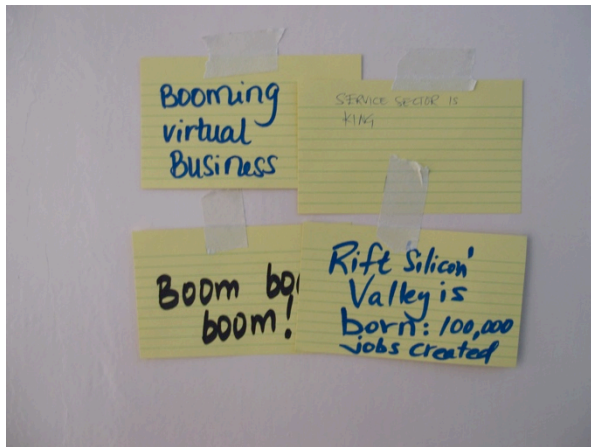 Booming
virtual
Business
SERVICE SECTOR IS
KING
Boom
boom!
Rift 'Silicon'
Valley is
born: 100,000
jobs created